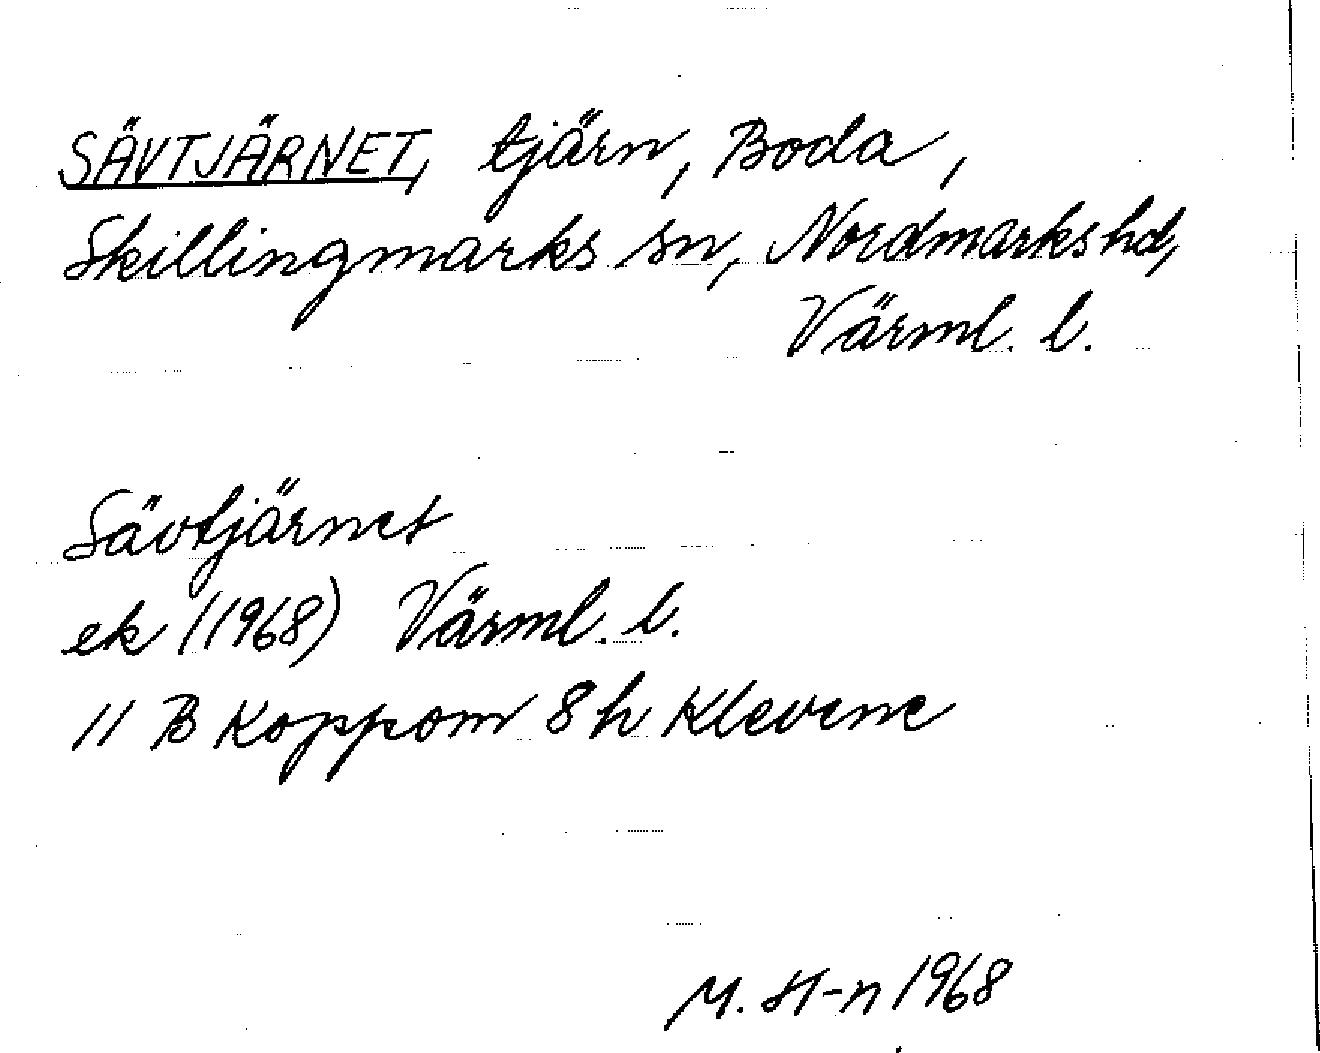 SÄVTJÄRNET, tjärn, Boda,
Skillingmarks sn, Nordmarks hd,
Värml. l.
Sävtjärnet
ek (1968) Värml. l.
11 B Koppom 8h Klevene
M. H-n 1968